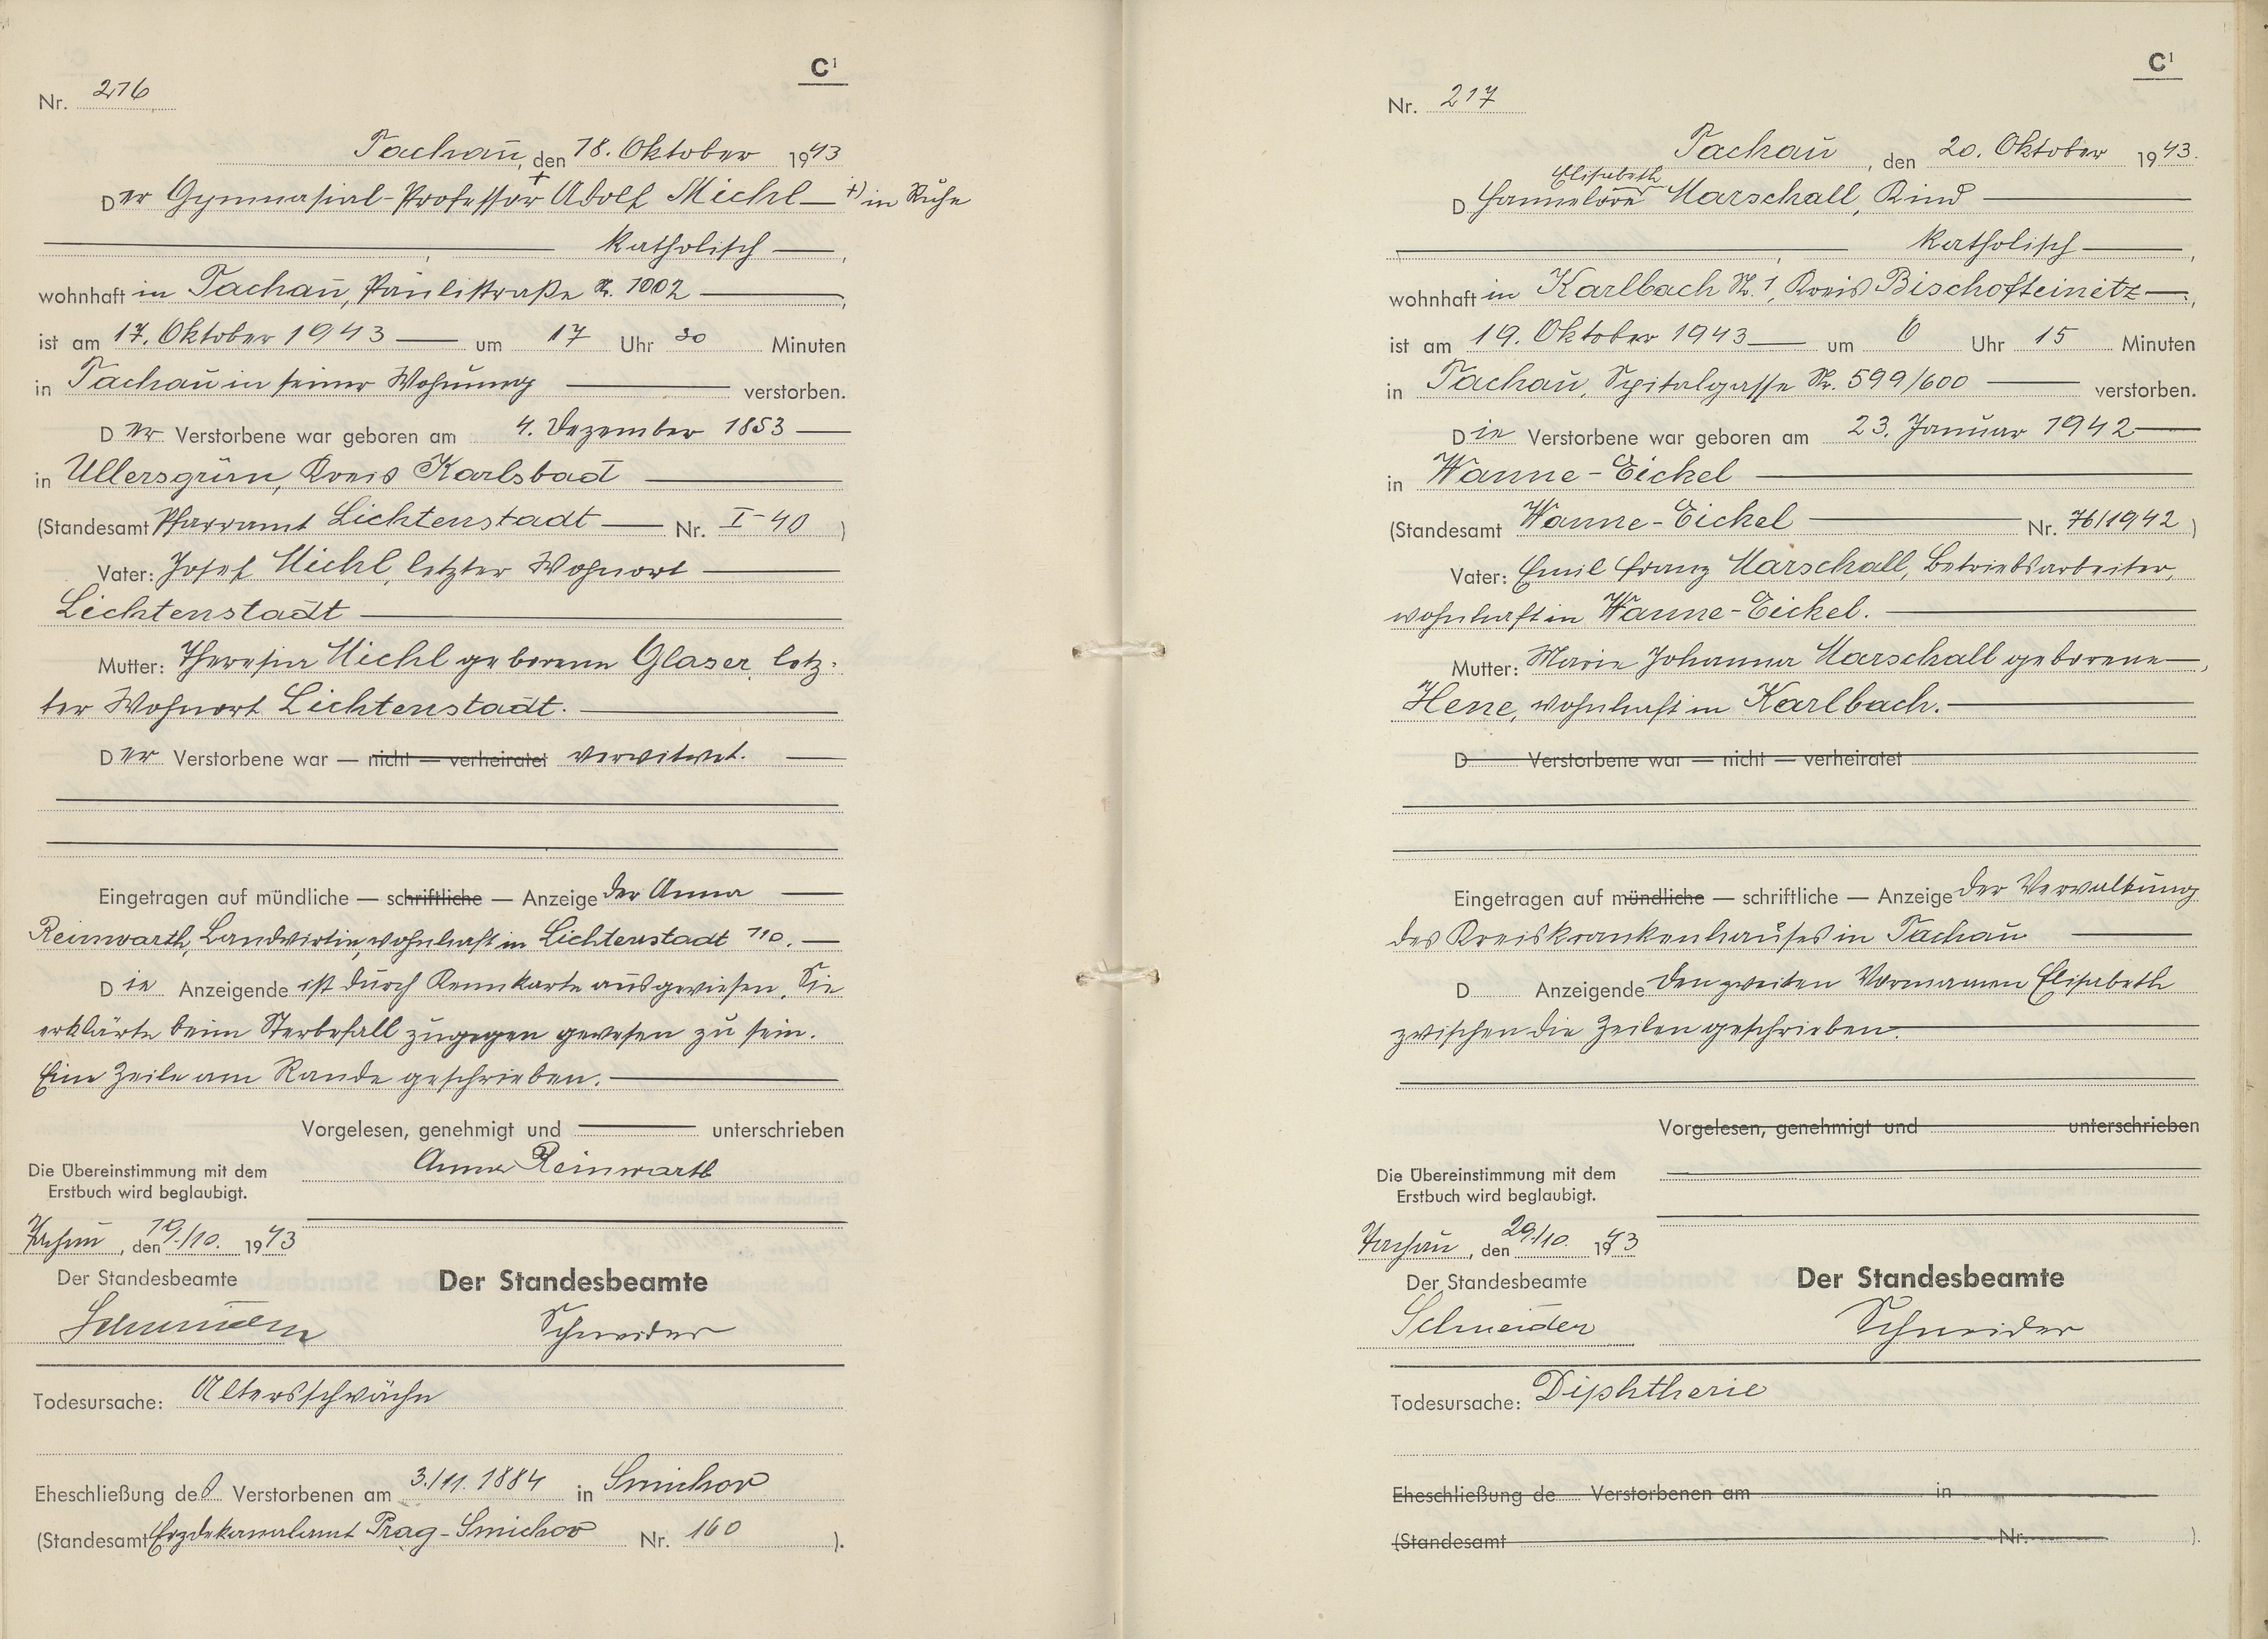 C¹
Nr. 216
Tachau, den 18. Oktober 1943
Der Gymnasial-Professor + Adolf Michl — +) in Ruhe
katholisch —,
wohnhaft in Tachau, Paulistraße Nr. 1002 —,
ist am 17. Oktober 1943 — um 17 Uhr 30 Minuten
in Tachau in seiner Wohnung — verstorben.
Der Verstorbene war geboren am 4. Dezember 1853 —
in Ullersgrün, Kreis Karlsbad —
(Standesamt Pfarramt Lichtenstadt — Nr. I-40 )
Vater: Josef Michl, letzter Wohnort —
Lichtenstadt —
Mutter: Theresia Michl geborene Glaser, letz-
ter Wohnort Lichtenstadt. —
Der Verstorbene war — nicht — verheiratet verwitwet. —
Eingetragen auf mündliche — schriftliche — Anzeige der Anna —
Reinwarth, Landwirtin, wohnhaft in Lichtenstadt 110. —
Die Anzeigende ist durch Kennkarte ausgewiesen. Sie
erklärte beim Sterbefall zugegen gewesen zu sein.
Eine Zeile am Rande geschrieben. —
Vorgelesen, genehmigt und — unterschrieben
Anna Reinwarth
Die Übereinstimmung mit dem
Erstbuch wird beglaubigt.
Tachau, den 19./10. 1943
Der Standesbeamte Der Standesbeamte
Schneider
Todesursache: Altersschwäche
Eheschließung des Verstorbenen am 3./11. 1884 in Smichov
(Standesamt Erzdekanalamt Prag-Smichov Nr. 160 ).
C¹
Nr. 217
Tachau, den 20. Oktober 1943.
Elisabeth
D Hannelore Marschall, Kind —
katholisch —,
wohnhaft in Karlbach Nr. 1, Kreis Bischofteinitz —,
ist am 19. Oktober 1943 — um 6 Uhr 15 Minuten
in Tachau, Spitalgasse Nr. 599/600 — verstorben.
Die Verstorbene war geboren am 23. Januar 1942 —
in Wanne-Eickel —
(Standesamt Wanne-Eickel — Nr. 76/1942 )
Vater: Emil Franz Marschall, Betriebsarbeiter,
wohnhaft in Wanne-Eickel. —
Mutter: Marie Johanna Marschall geborene —,
Hene, wohnhaft in Karlbach. —
D Verstorbene war — nicht — verheiratet
Eingetragen auf mündliche — schriftliche — Anzeige der Verwaltung
des Kreiskrankenhauses in Tachau —
D Anzeigende Den zweiten Vornamen Elisabeth
zwischen die Zeilen geschrieben. —
Vorgelesen, genehmigt und unterschrieben
Die Übereinstimmung mit dem
Erstbuch wird beglaubigt.
Tachau, den 20./10. 1943
Der Standesbeamte Der Standesbeamte
Schneider Schneider
Todesursache: Diphtherie
Eheschließung de Verstorbenen am in
(Standesamt Nr. ).